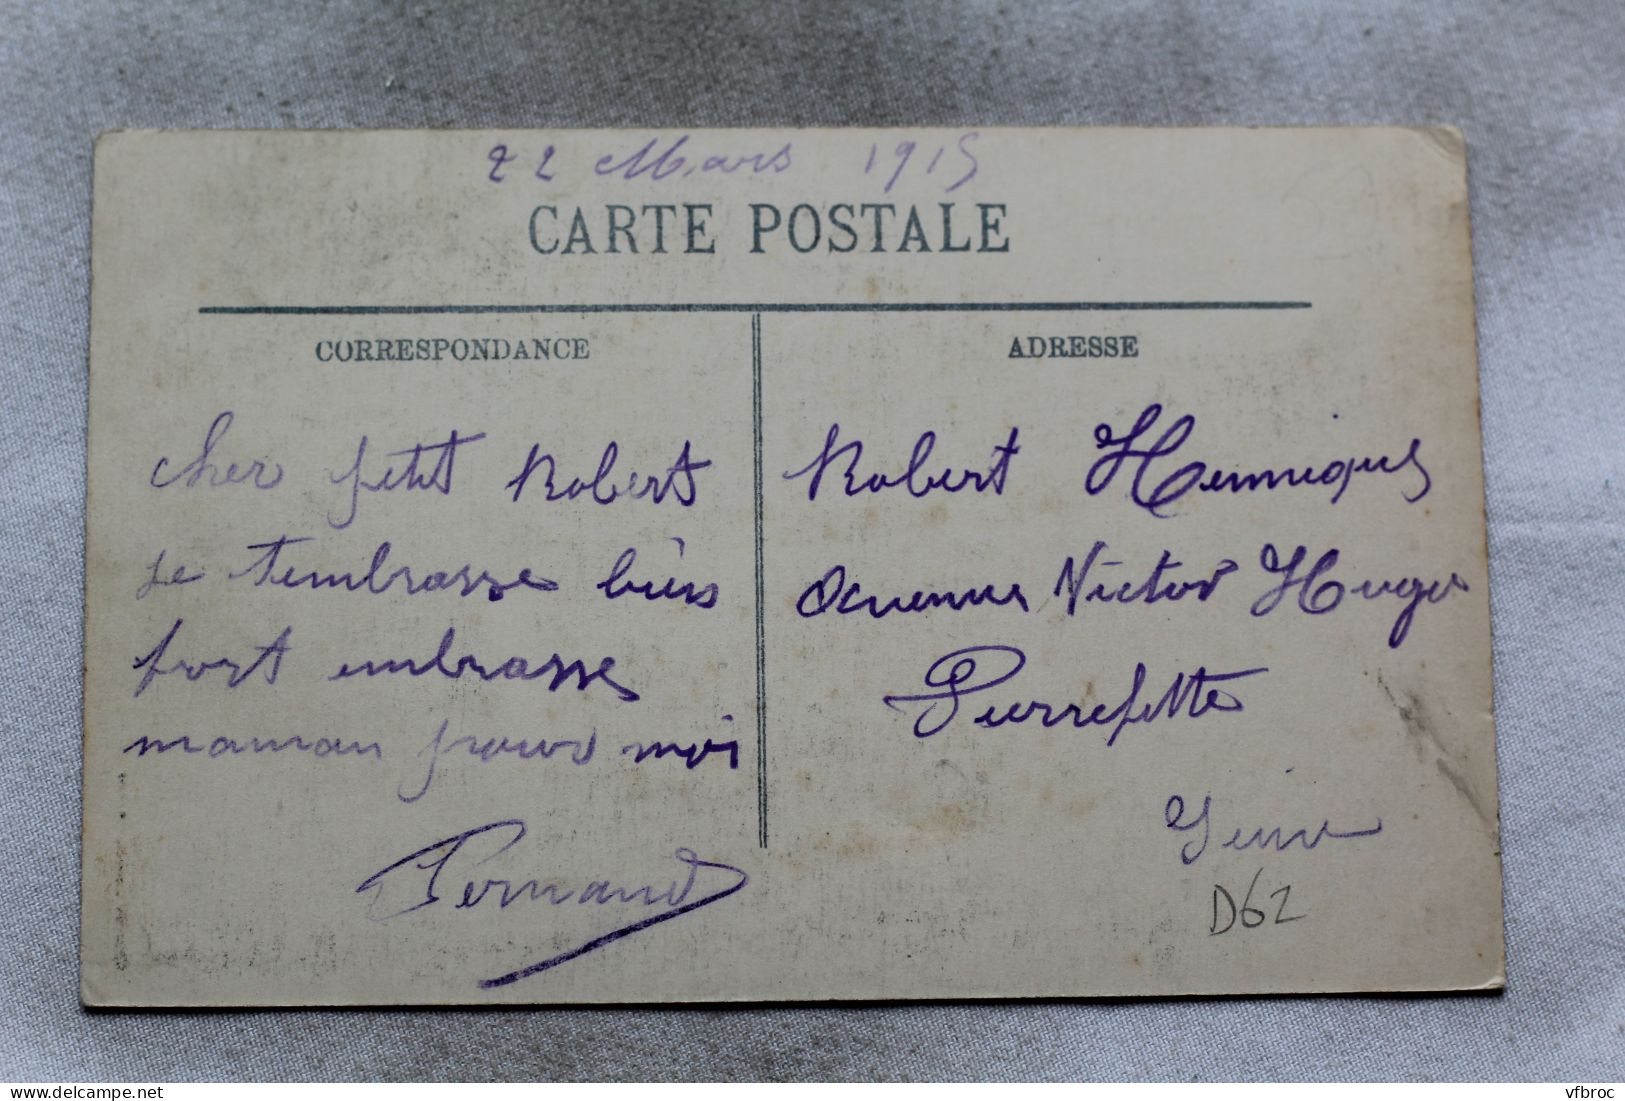 22 Mars 1915
CARTE POSTALE
CORRESPONDANCE
cher petit Robert
je t'embrasse bien
fort embrasse
maman pour moi
Fernand
ADRESSE
Robert Hennique
avenue Victor Hugo
Pierrefitte
Seine
D62
vfbroc